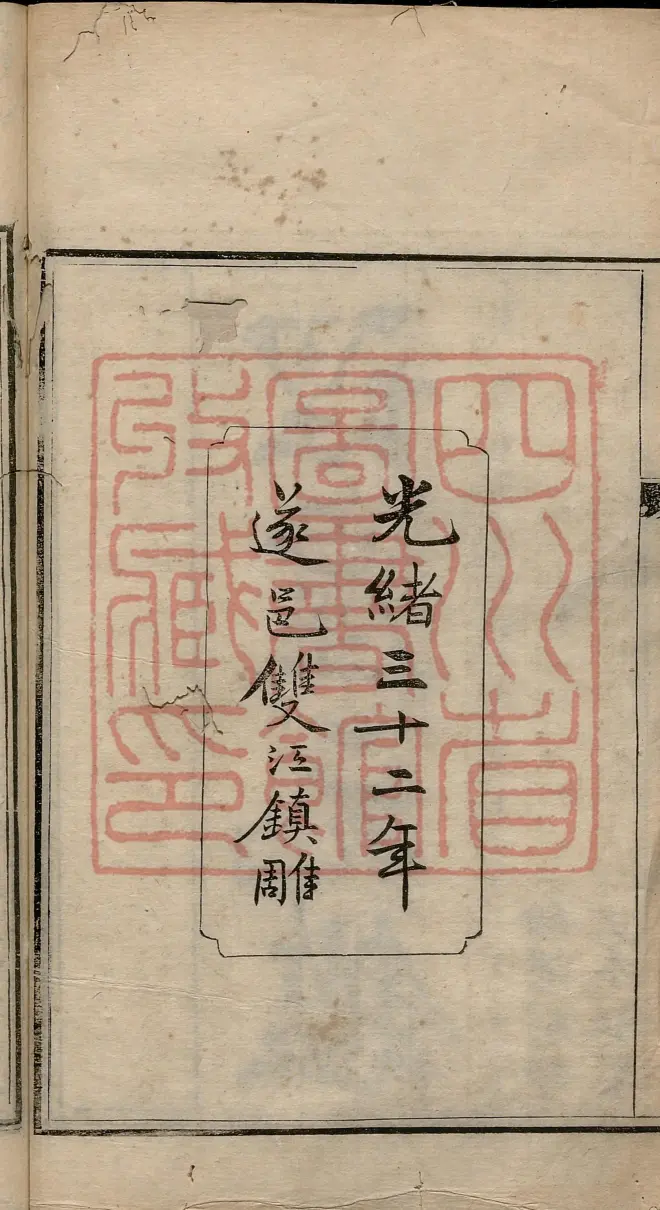 光緒三十二年
遂邑雙江鎮雕
四川省
圖書館
收藏印